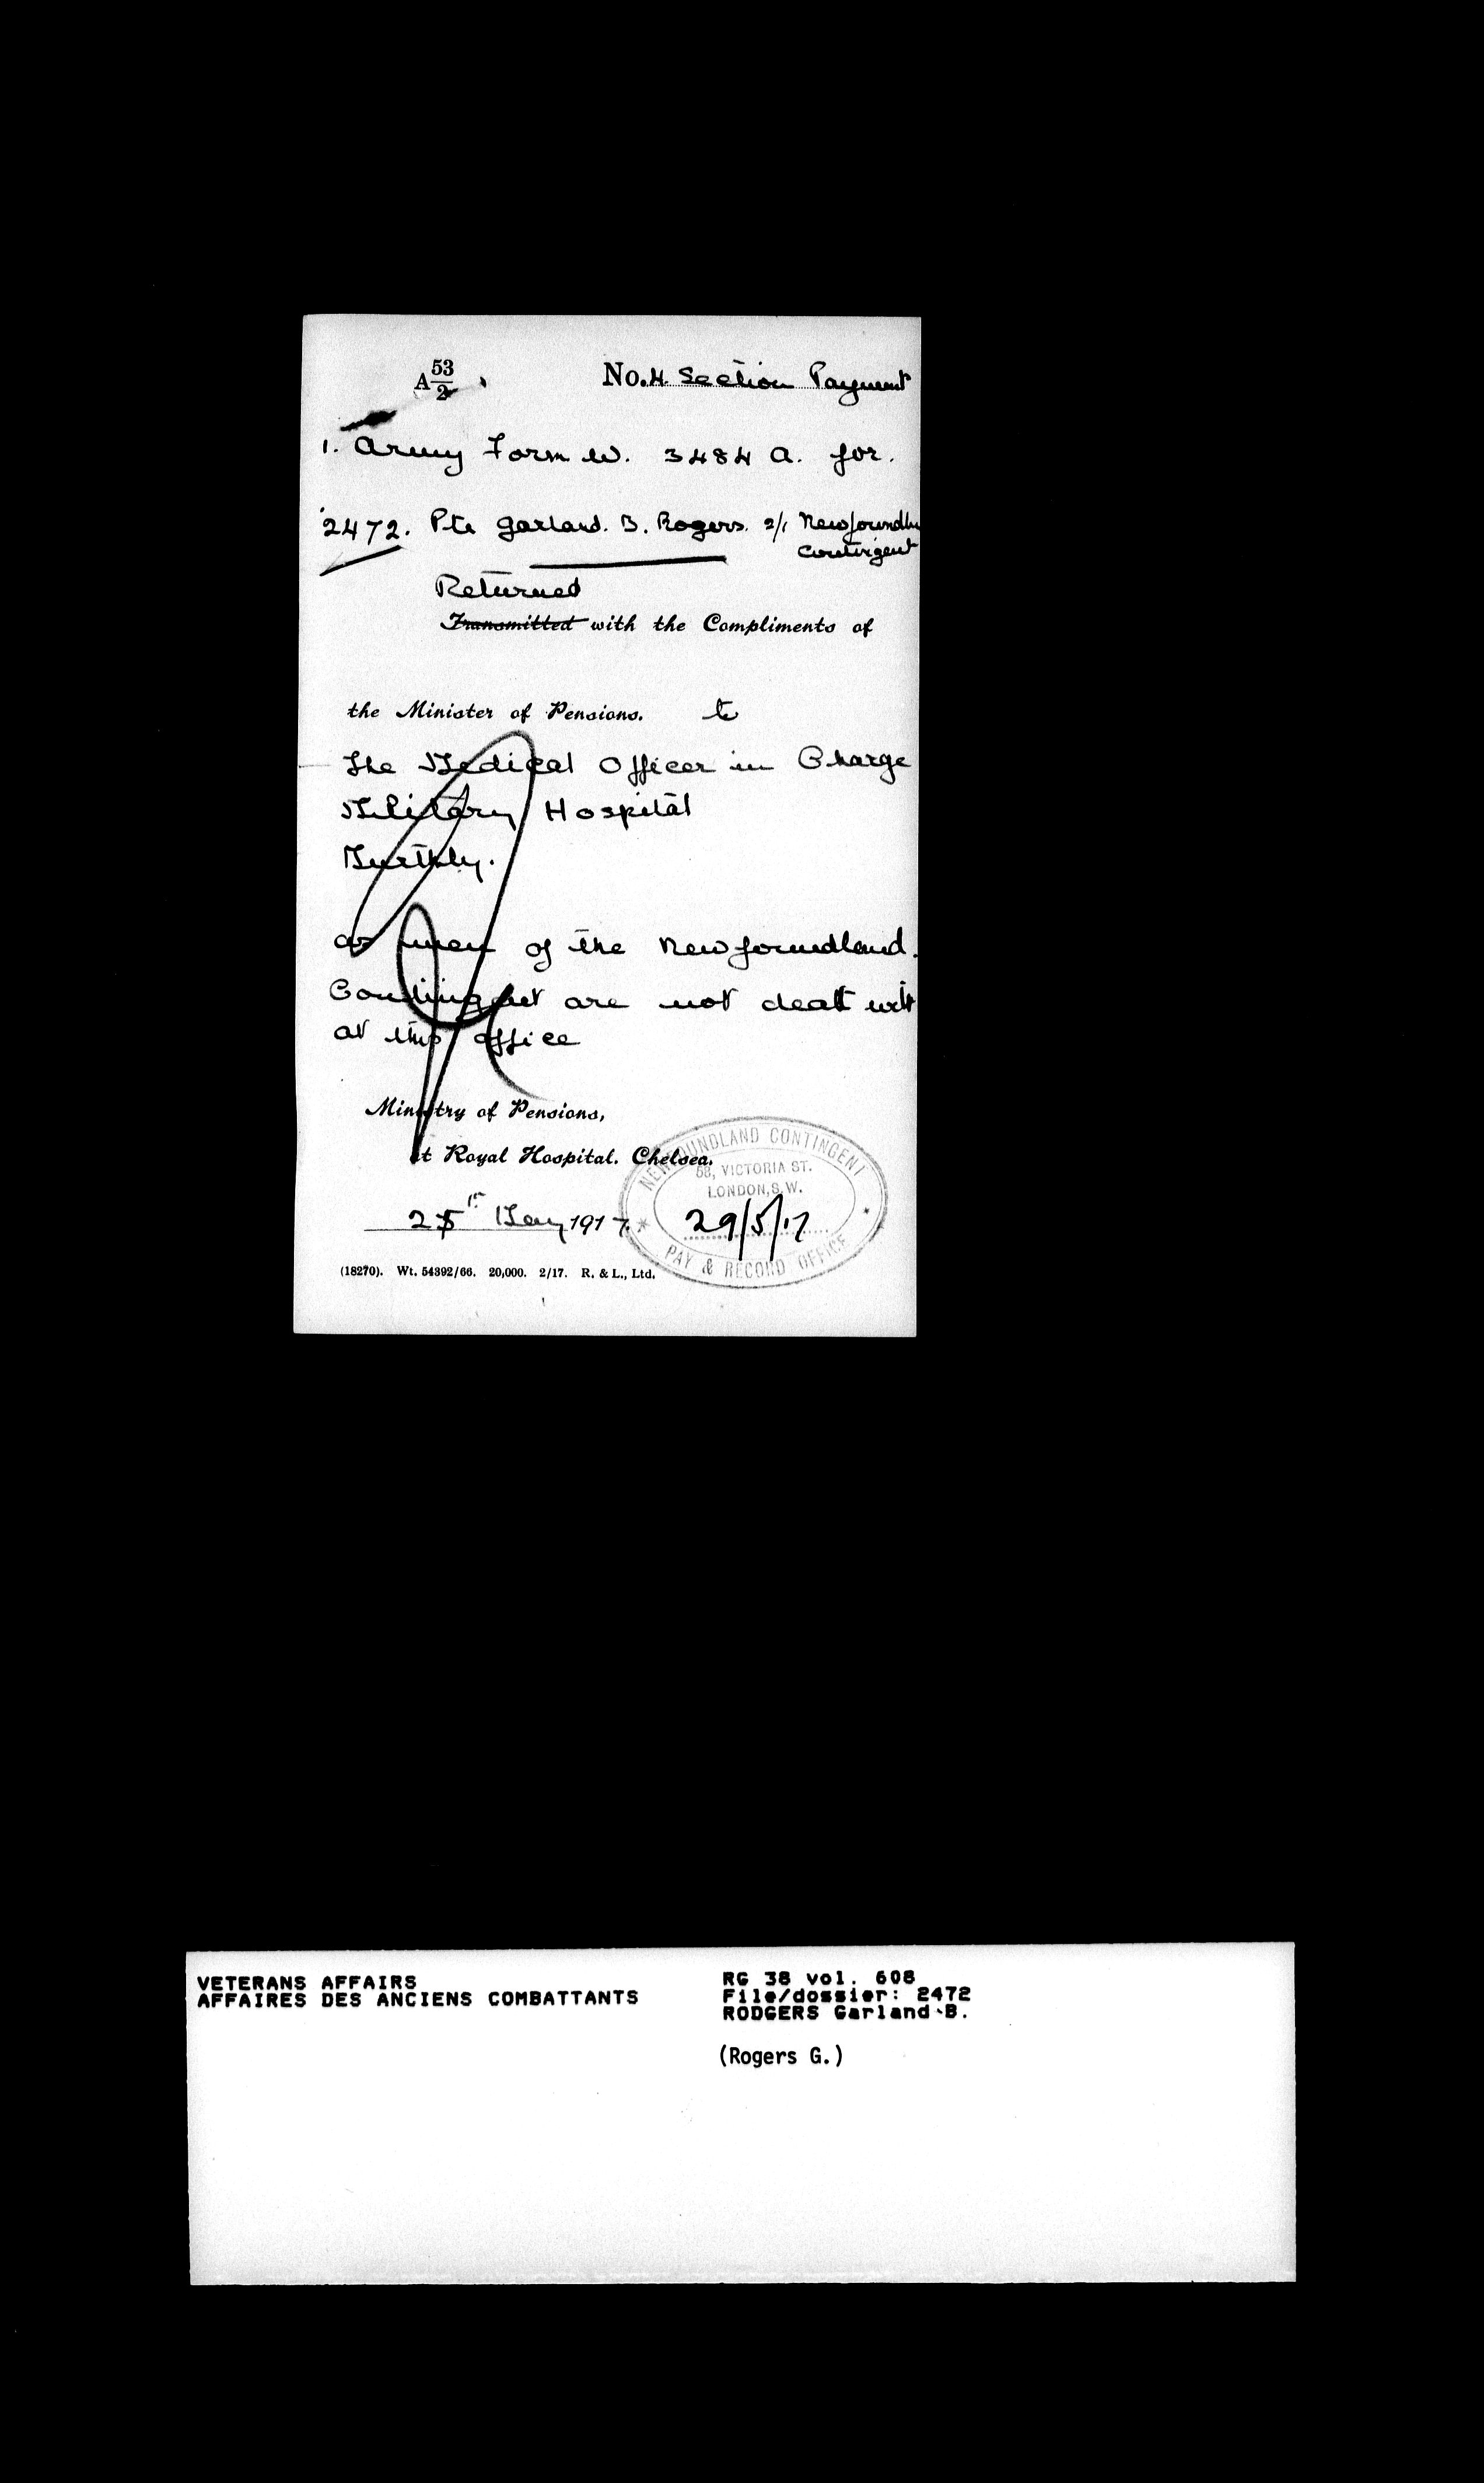 A 53/2
No. 4. Section Payment
1. Army Form W. 3484 A. for.
2472. Pte Garland. B. Rogers. 2/1 Newfoundla
Contingent
Returned
Transmitted with the Compliments of
the Minister of Pensions. to
The Medical Officer in Charge
Military Hospital
Murthly.
as men of the Newfoundland.
Contingent are not dealt with
at this office
Ministry of Pensions,
at Royal Hospital. Chelsea.
25th May 1917.
NEWFOUNDLAND CONTINGENT
58, VICTORIA ST.
LONDON, S.W.
29/5/17
PAY & RECORD OFFICE
(18270). Wt. 54392/66. 20,000. 2/17. R. & L., Ltd.
VETERANS AFFAIRS
AFFAIRES DES ANCIENS COMBATTANTS
RG 38 vol. 608
File/dossier: 2472
RODGERS Garland B.
(Rogers G.)